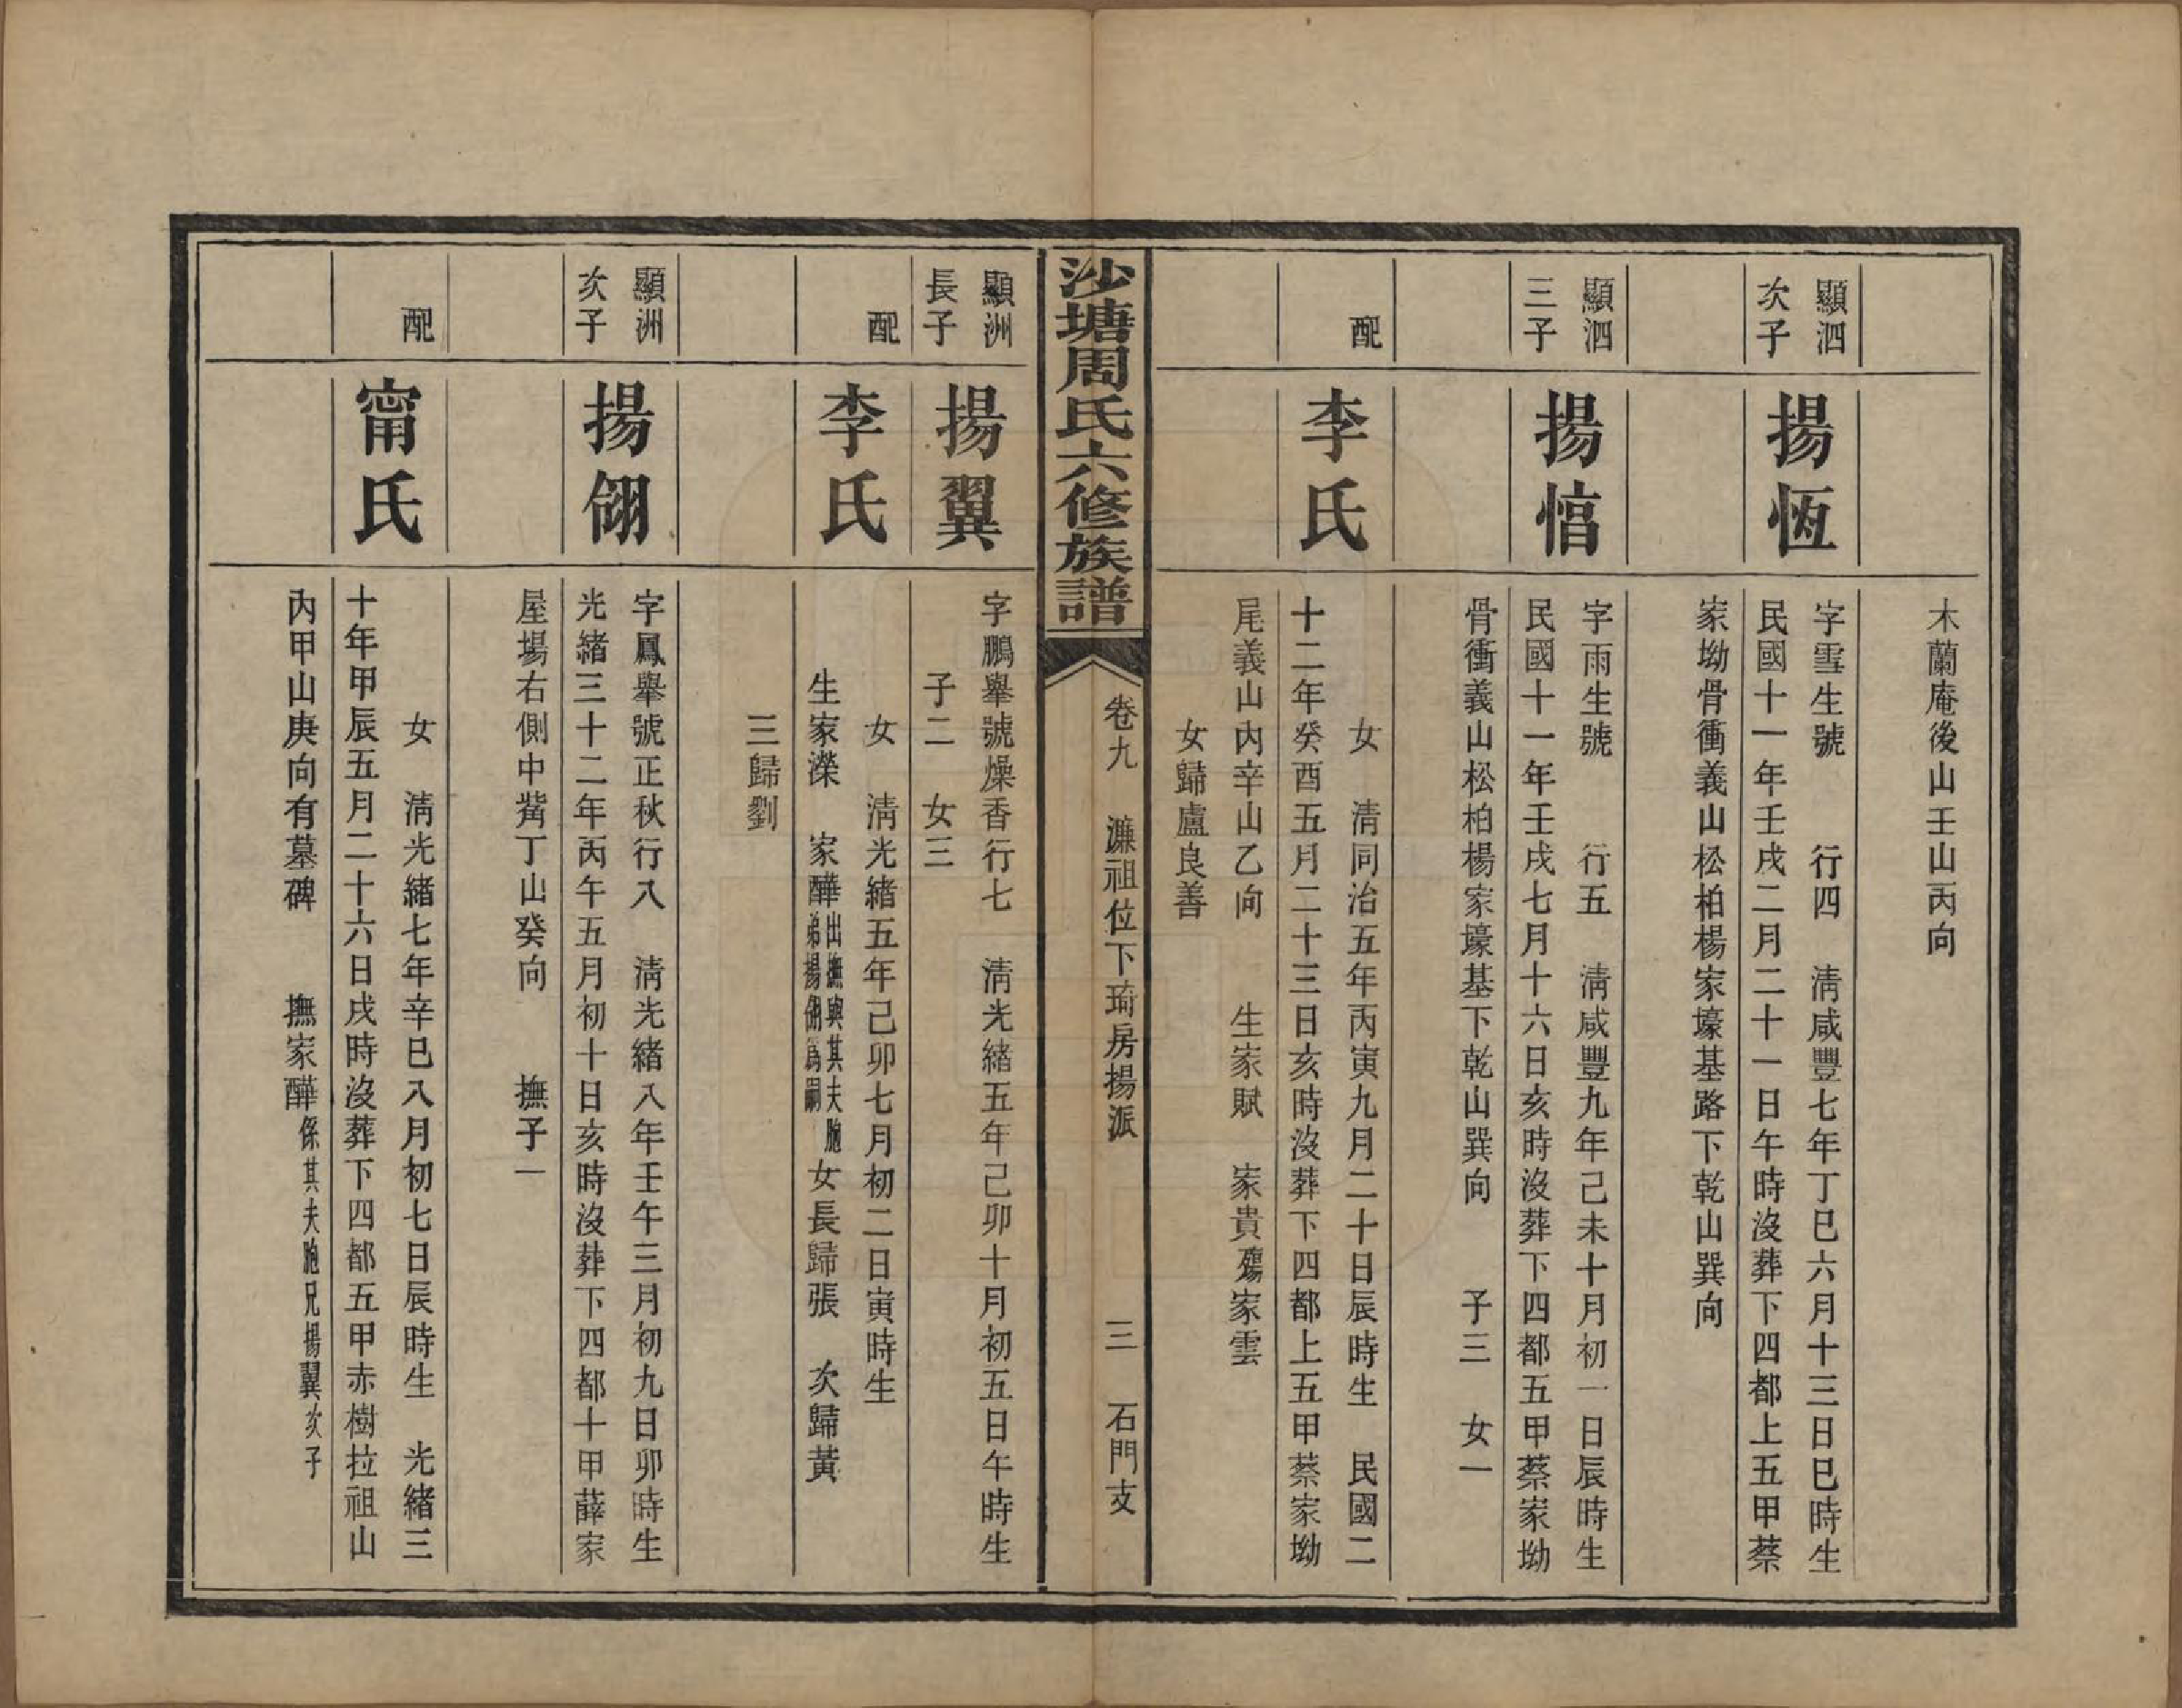 木蘭庵後山壬山丙向
顯泗
次子
揚恆
字雪生號　行四　淸咸豐七年丁巳六月十三日巳時生
民國十一年壬戌二月二十一日午時沒葬下四都上五甲蔡
家坳骨衝義山松柏楊家壕基路下乾山巽向
顯泗
三子
揚愭
字雨生號　行五　淸咸豐九年己未十月初一日辰時生
民國十一年壬戌七月十六日亥時沒葬下四都五甲蔡家坳
骨衝義山松柏楊家壕基下乾山巽向　子三　女一
配
李氏
女　淸同治五年丙寅九月二十日辰時生　民國二
十二年癸酉五月二十三日亥時沒葬下四都上五甲蔡家坳
尾義山內辛山乙向　生家賦　家貴殤家雲
女歸盧良善
沙塘周氏六修族譜
卷九　濂祖位下琦房揚派　三　石門支
顯洲
長子
揚翼
字鵬舉號燥香行七　淸光緒五年己卯十月初五日午時生
子二　女三
配
李氏
女　淸光緒五年己卯七月初二日寅時生
生家濼　家驊出撫與其夫胞弟揚翎爲嗣女長歸張　次歸黃
三歸劉
顯洲
次子
揚翎
字鳳舉號正秋行八　淸光緒八年壬午三月初九日卯時生
光緒三十二年丙午五月初十日亥時沒葬下四都十甲薛家
屋場右側中觜丁山癸向　撫子一
配
甯氏
女　淸光緒七年辛巳八月初七日辰時生　光緒三
十年甲辰五月二十六日戌時沒葬下四都五甲赤樹拉祖山
內甲山庚向有墓碑　撫家驊係其夫胞兄揚翼次子